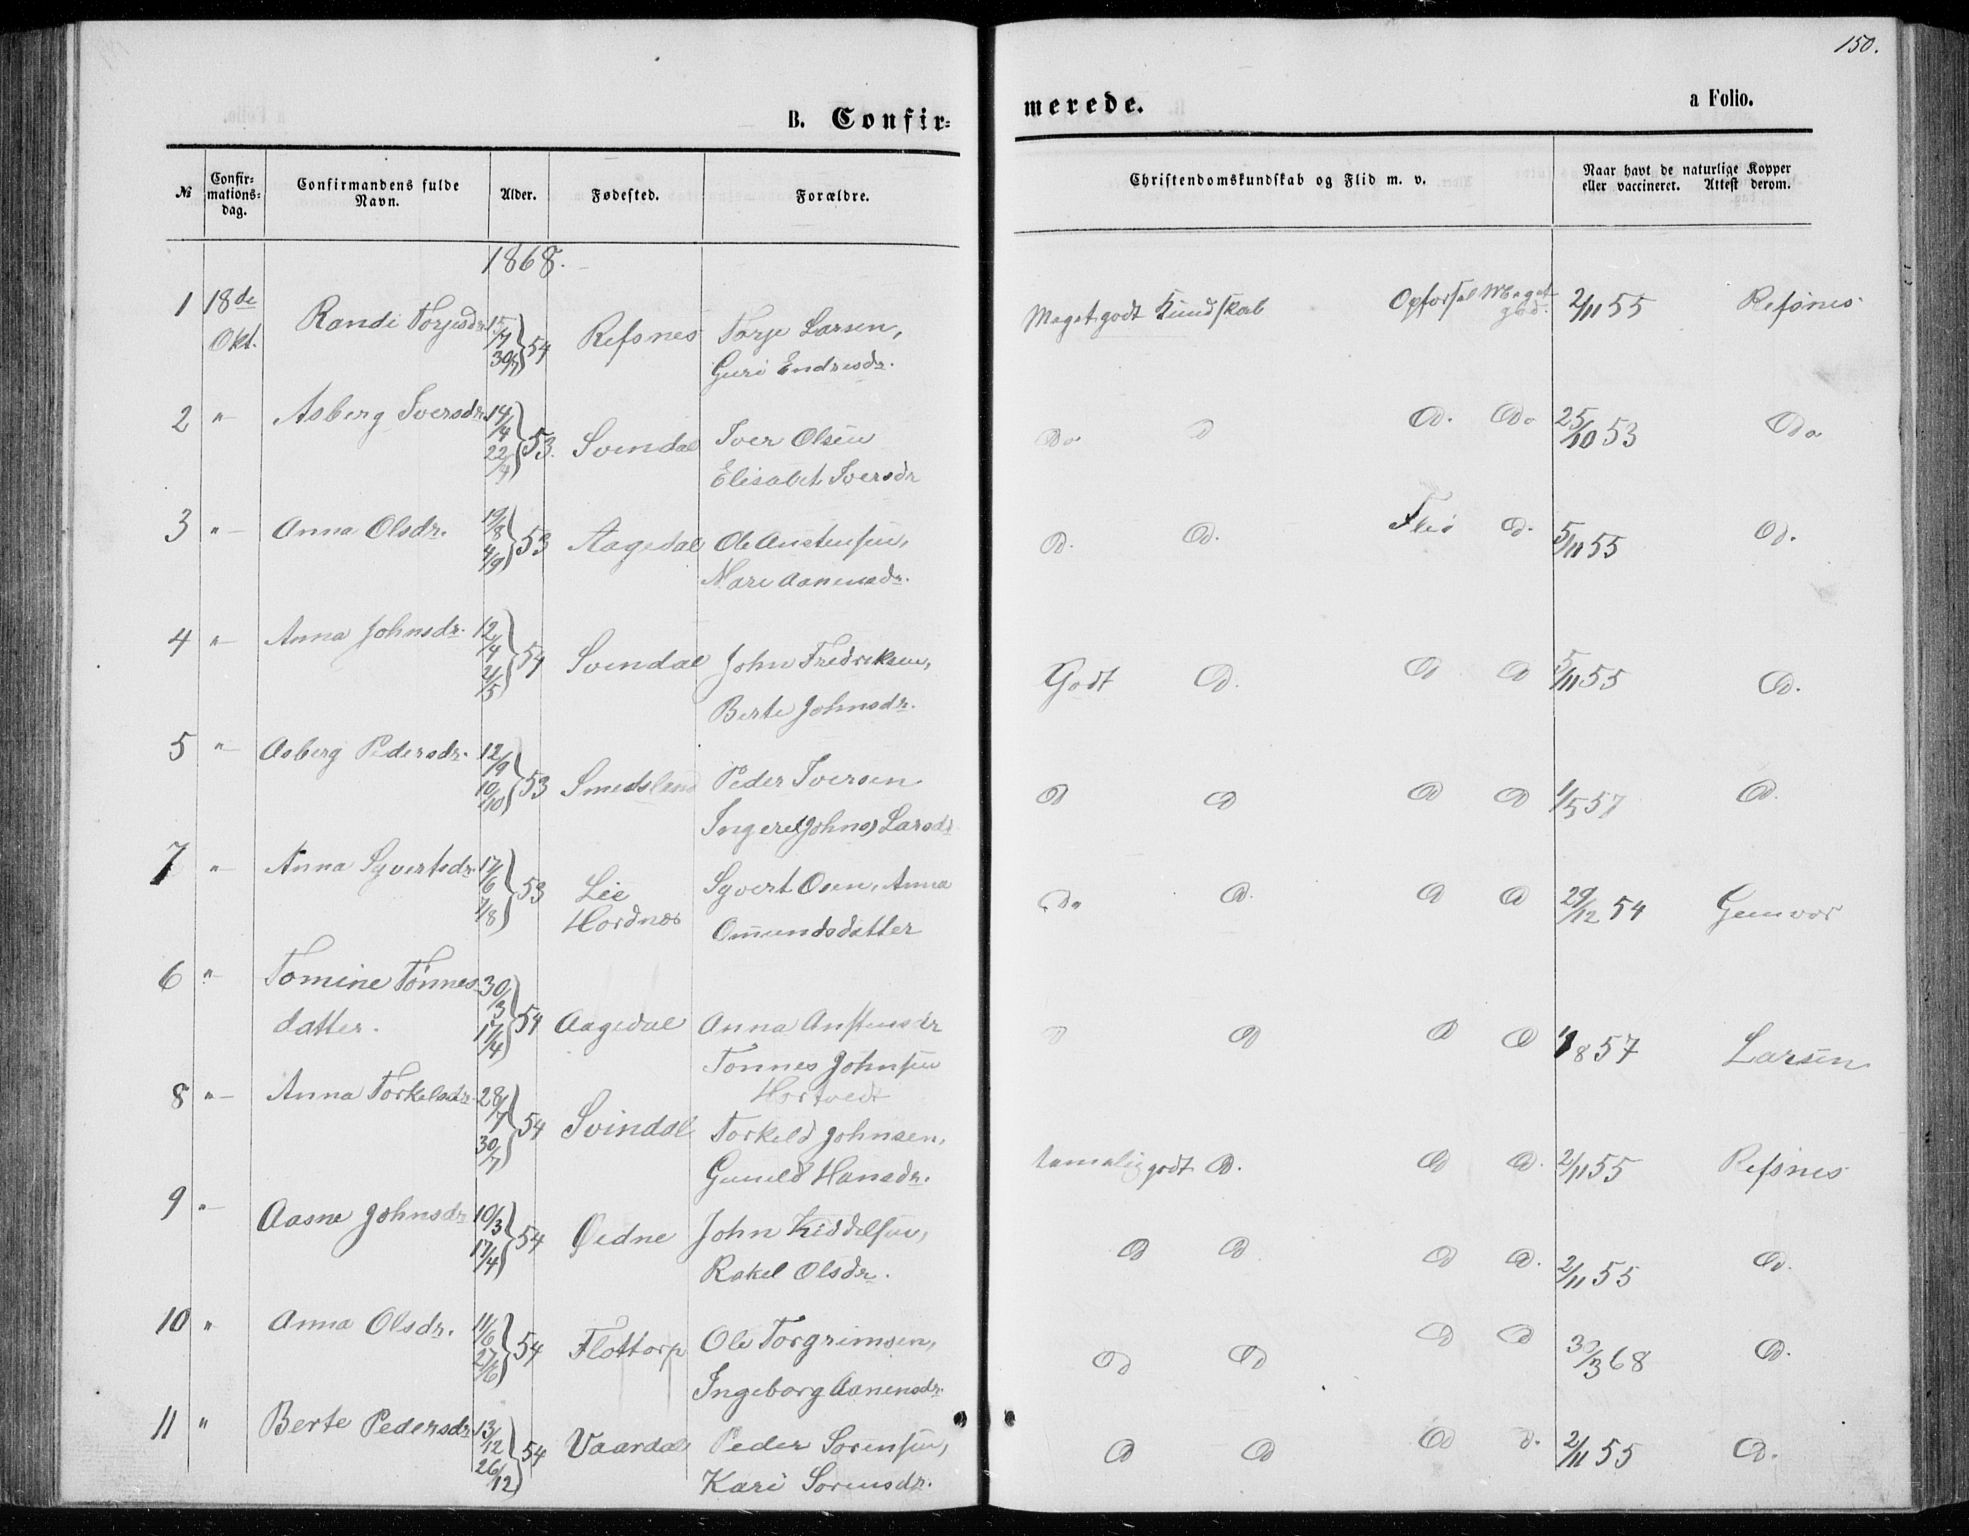 150.
B. Confir-
merede.
a Folio.
№
Confir-
mations-
dag.
Confirmandens fulde
Navn.
Alder.
Fødested.
Forældre.
Christendomskundskab og Flid m. v.
Naar havt de naturlige Kopper
eller vaccineret. Attest derom.
1868.
1 18de Okt. Randi Torjesdr. 15/7 30/7 } 54 Refsnes Torje Larsen,
Guri Endresdr.
Meget godt Kundskab Opforsel Meget god. 2/11 55 Refsnes
2 " Asberg Iversdr. 14/14 22/4 } 53. Svendal Iver Olsen
Elisabet Iversdr
Do D D. Do 25/10 53 Do
3 " Anna Olsdr. 19/8 4/9 } 53 Aagedal Ole Austensen,
Mari Aanensdr.
D. D. Flid D. 5/11 55 D.
4 " Anna Johnsdr. 12/4 21/5 } 54 Svendal John Fredriksen,
Berte Johnsdr.
Godt D. D D 5/11 55 D.
5 " Asberg Pedersdr. 12/9 10/10 } 53 Smedsland Peder Iversen
Inger (Johns) Larsdr
D D D D 1/5 57 D.
7 " Anna Syvertsdr. 17/6 7/8 } 53 Lie
Hordnes
Syvert Osen, Anna
Omundsdatter
Do D. D D 29/12 54 Gunvor
6 " Tomine Tønnes-
datter. 30/3 17/4 } 54 Aagedal Anna Anstensdr
Tønnes Johnsen
Hortvedt
D D D D 1/8 57 Larsen
8 " Anna Torkelsdr. 28/7 30/7 } 54 Svindal Torkeld Johnsen,
Gunild Hansdr.
temelig godt D. D D. 2/11 55 Refsnes
9 " Aasne Johnsdr. 10/3 17/4 } 54 Øidne John Kiddelsen,
Rakel Olsdr.
D D D D. 2/11 55 D.
10 " Anna Olsdr. 11/6 27/6 } 54 Flottorp Ole Torgrimsen,
Ingeborg Aanensdr.
D D D D 30/3 68 D.
11 " Berte Pedersdr. 13/12 26/12 } 54 Vaardal Peder Sorensen,
Kari Sorensdr.
D D D D. 2/11 55 D.